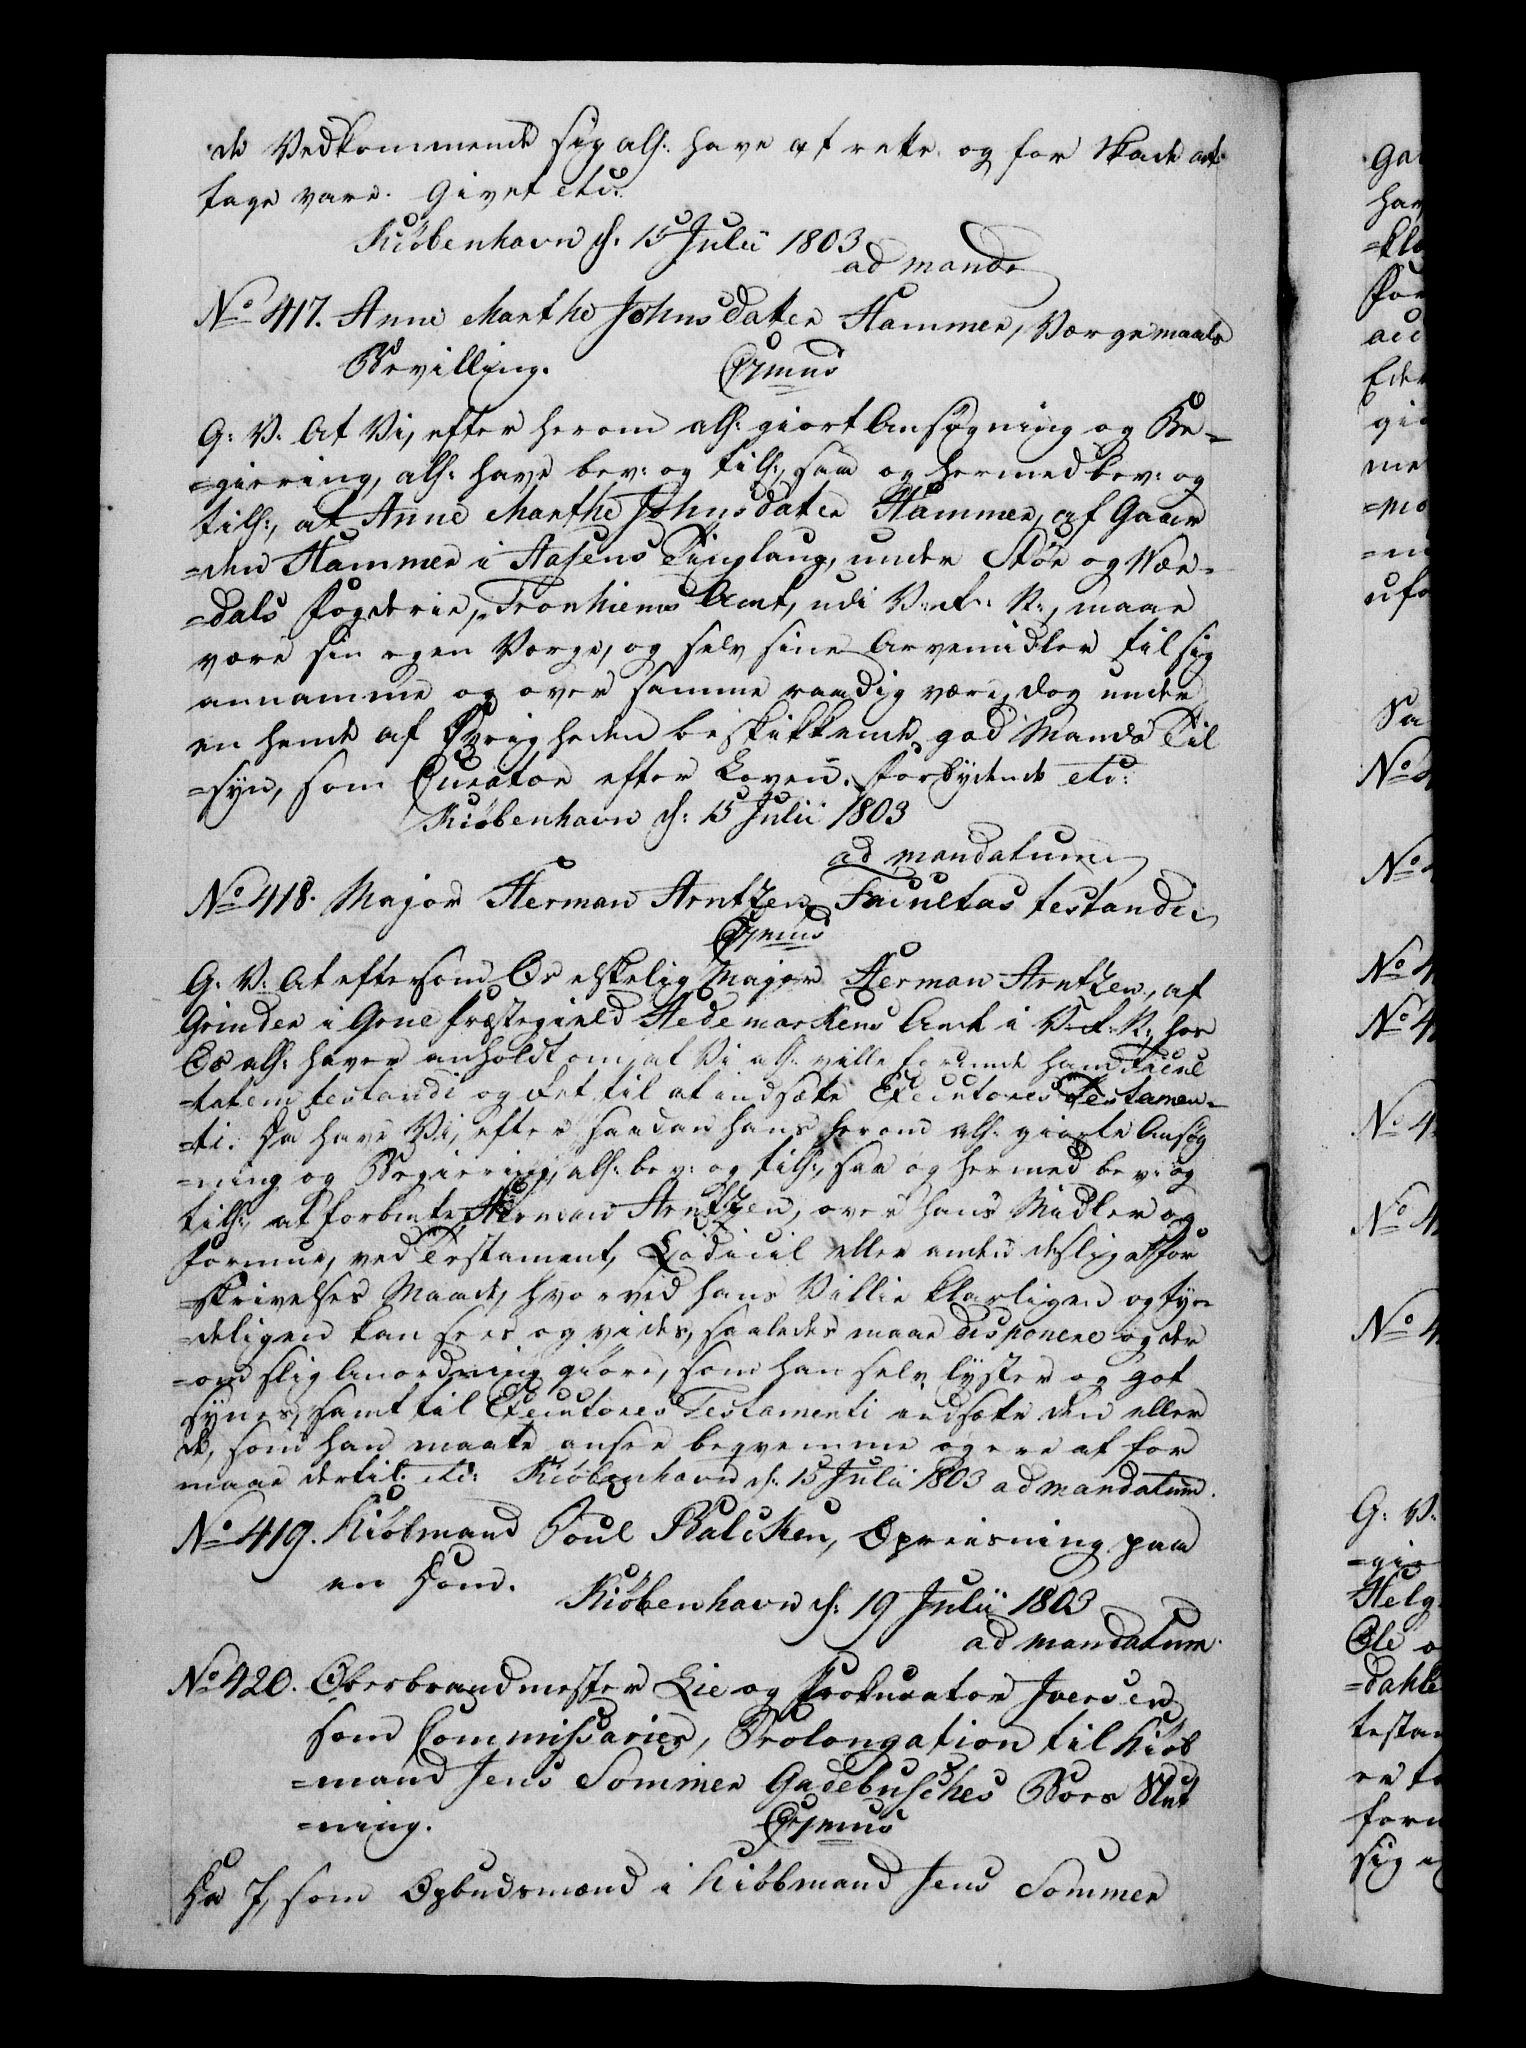 de Vedkommende sig als: have at rette og for Skade at
tage vare. Givet etc:
Kiöbenhavn d: 15 Julii 1803
ad mand:
No 417. Anne Marthe Johnsdatter Hammer, Værgemaals
Bevilling.
G: V: At Vi, efter herom als: giort Ansøgning og Be-
=giering, als: have bev: og tils:, saa og hermed bev: og
tils:, at Anne Marthe Johnsdatter Hammer, af Gaar
=den Hammer i Aasens Tinglaug, under Stör og Vær-
=dals Fogderie, Tronhiems Amt, udi V: R: N:, maae
være sin egen Værge, og selv sine Arvemidler til sig
annamme og over samme raadig være, dog under
en hende af Øvrigheden beskikkende god Mands Til
=syn, som Curator efter Loven. Forbydende etc:
Kiöbenhavn d: 15 Julii 1803
ad mandatum
No 418. Major Herman Arntzen Facultas testandi
G: V: At eftersom Os elskelig Major Herman Arntzen, af
Grinder i Grue Præstegield Hedemarkens Amt i V: R: N:, hos
Os als: haver anholdt om, at Vi als: ville forunde ham Facul
=tatem testandi og Ret til at indsætte Executores Testamen-
=ti. Da have Vi, efter saadan hans herom als: giorte Ansøg
=ning og Begiering, als: bev: og tils:, saa og hermed bev: og
tils:, at forbmte Herman Arntzen, over hans Midler og
Formue, ved Testament, Codicil eller anden deslige For
=skrivelses Maade, hvorved hans Villie klarligen og tyu
=deligen kan sees og vides, saaledes maae disponere og der
=om slig Anordning giöre, som han selv lyster og got
synes, samt til Executores Testamenti indsætte den eller
de, som han maatte ansee beqvemme og eene at for
maae dertil. etc: Kiöbenhavn d: 15 Julii 1803 ad mandatum.
No 419. Kiöbmand Poul Balcken, Opreisning paa
en Dom.
Kiöbenhavn d: 19 Julii 1803
ad mandatum.
No 420. Overbrandmester Lie og Prokurator Iversen
som Commissarier, Prolongation til Kiöb
=mand Jens Sommer Gadebusches Boes Slut
=ning.
Da I, som Opbudsmænd i Kiöbmand Jens Sommer